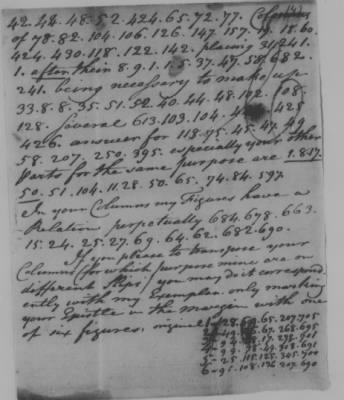 42. 48. 48. 52. 424. 65. 72. 77. Columns
of 78. 82. 104. 106. 126. 147. 157. 19. 18. 60.
424. 430. 118. 122. 142. placing 31. 241.
1. after them 8. 9. 1. 1. 5. 37. 47. 58. 682.
241. being necessary to make up
33. 8. 8. 35. 51. 52. 40. 44. 48. 102. 108.
128. Several 613. 103. 104. 425
426. answer for 118. 75. 45. 47. 49
58. 207. 250. 395. especially your other
Parts for the same purpose are 1. 8. 17.
50. 51. 104. 11. 28. 50. 65. 74. 84. 597.
In your Columns my Figures have a
Relation perpetually 684. 678. 663.
15. 24. 25. 27. 69. 64. 62. 682. 690.
If you please to transpose your
Columns (for which purpose mine are on
different Slips) you may do it correspond
ently with my Exemplar only marking
your Epistle in the margin with one
of six figures; original 1. 28. 59. 65. 207. 205
65. 67. 268. 695
17. 278. 701
3. 9. 9. 38. 49. 308. 691
5. 25. 115. 125. 345. 700
6. 95. 108. 136. 207. 690